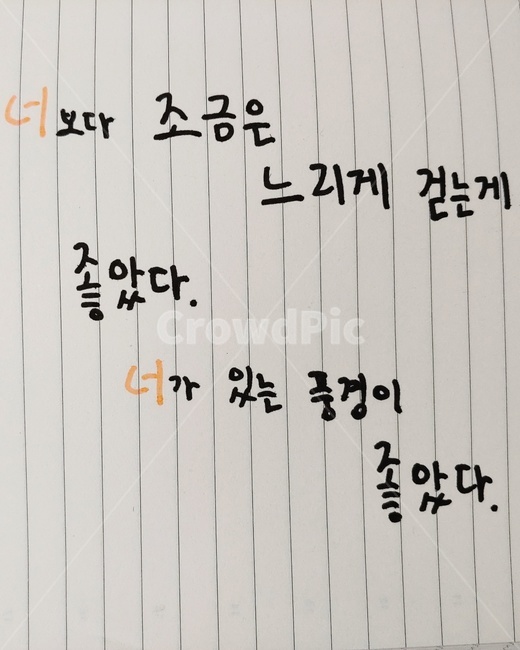 너보다 조금은
느리게 걷는게
좋았다.
CrowdPic
너가 있는 풍경이
좋았다.